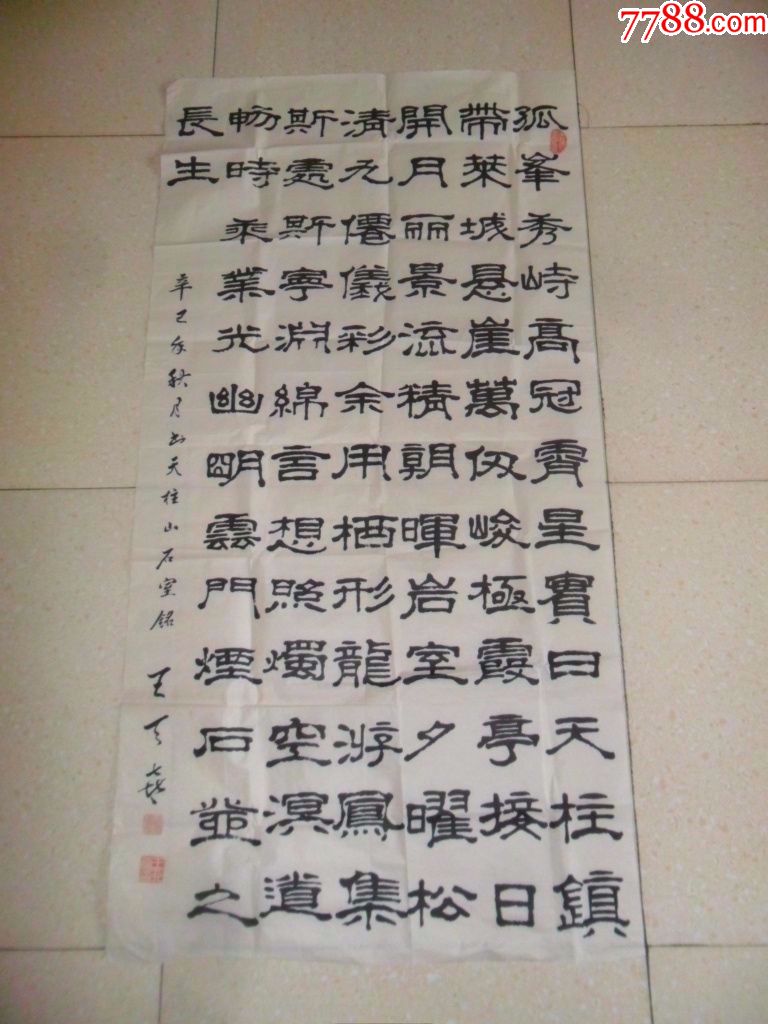 7788.com
孤峯秀峙高冠霄星實曰天柱鎮
帶萊城悬崖萬仞峻極霞亭接日
開月丽景流精朝暉岩室夕曜松
清九僊儀彩余用栖形龍游鳳集
斯處斯寧淵綿言想照燭空溟道
暢時乘業光幽明雲門煙石登之
長生
辛巳年秋月书天柱山石室銘
王天㐂